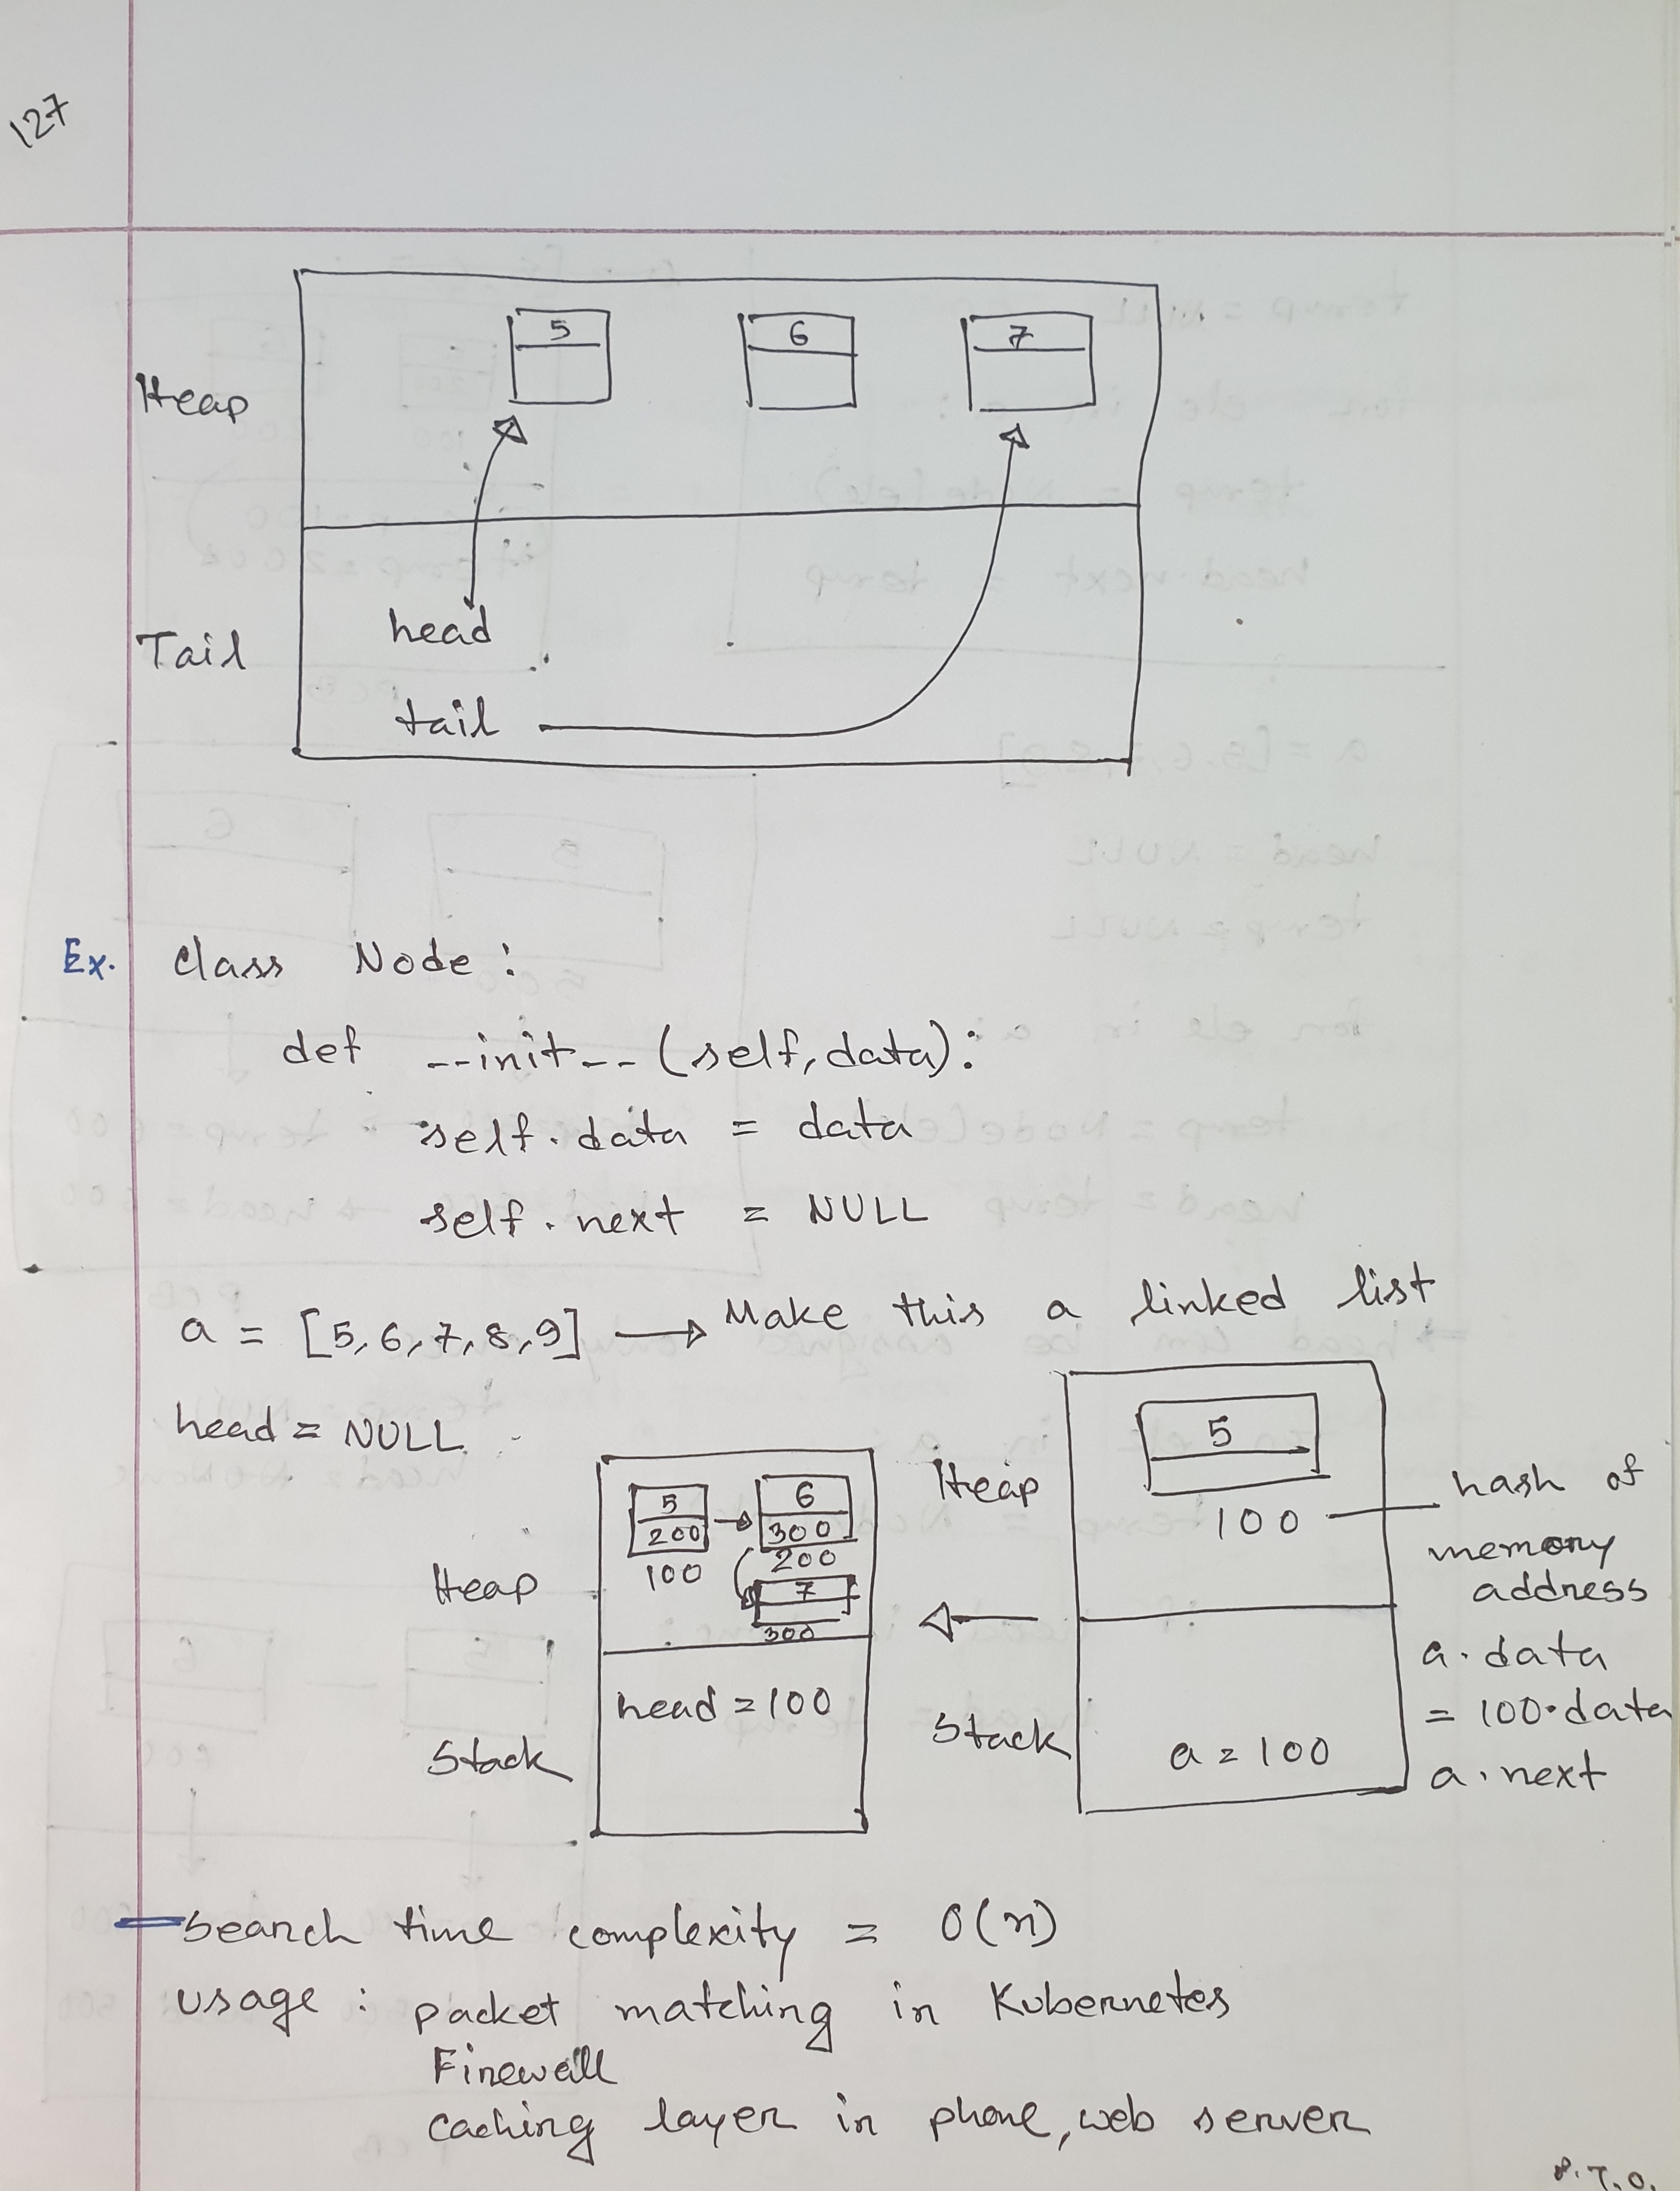 127
5 6 7
Heap
head
Tail
tail
Ex. class Node :
def __init__ (self, data):
self.data = data
self.next = NULL
a = [5, 6, 7, 8, 9] → Make this a linked list
head = NULL
5
200
100
6
300
200
7
300
Heap
head = 100
Stack
Heap
5
100
hash of
memory
address
Stack
a = 100
a.data
= 100.data
a.next
search time complexity = O(n)
usage : packet matching in Kubernetes
Firewall
caching layer in phone, web server
P.T.O.